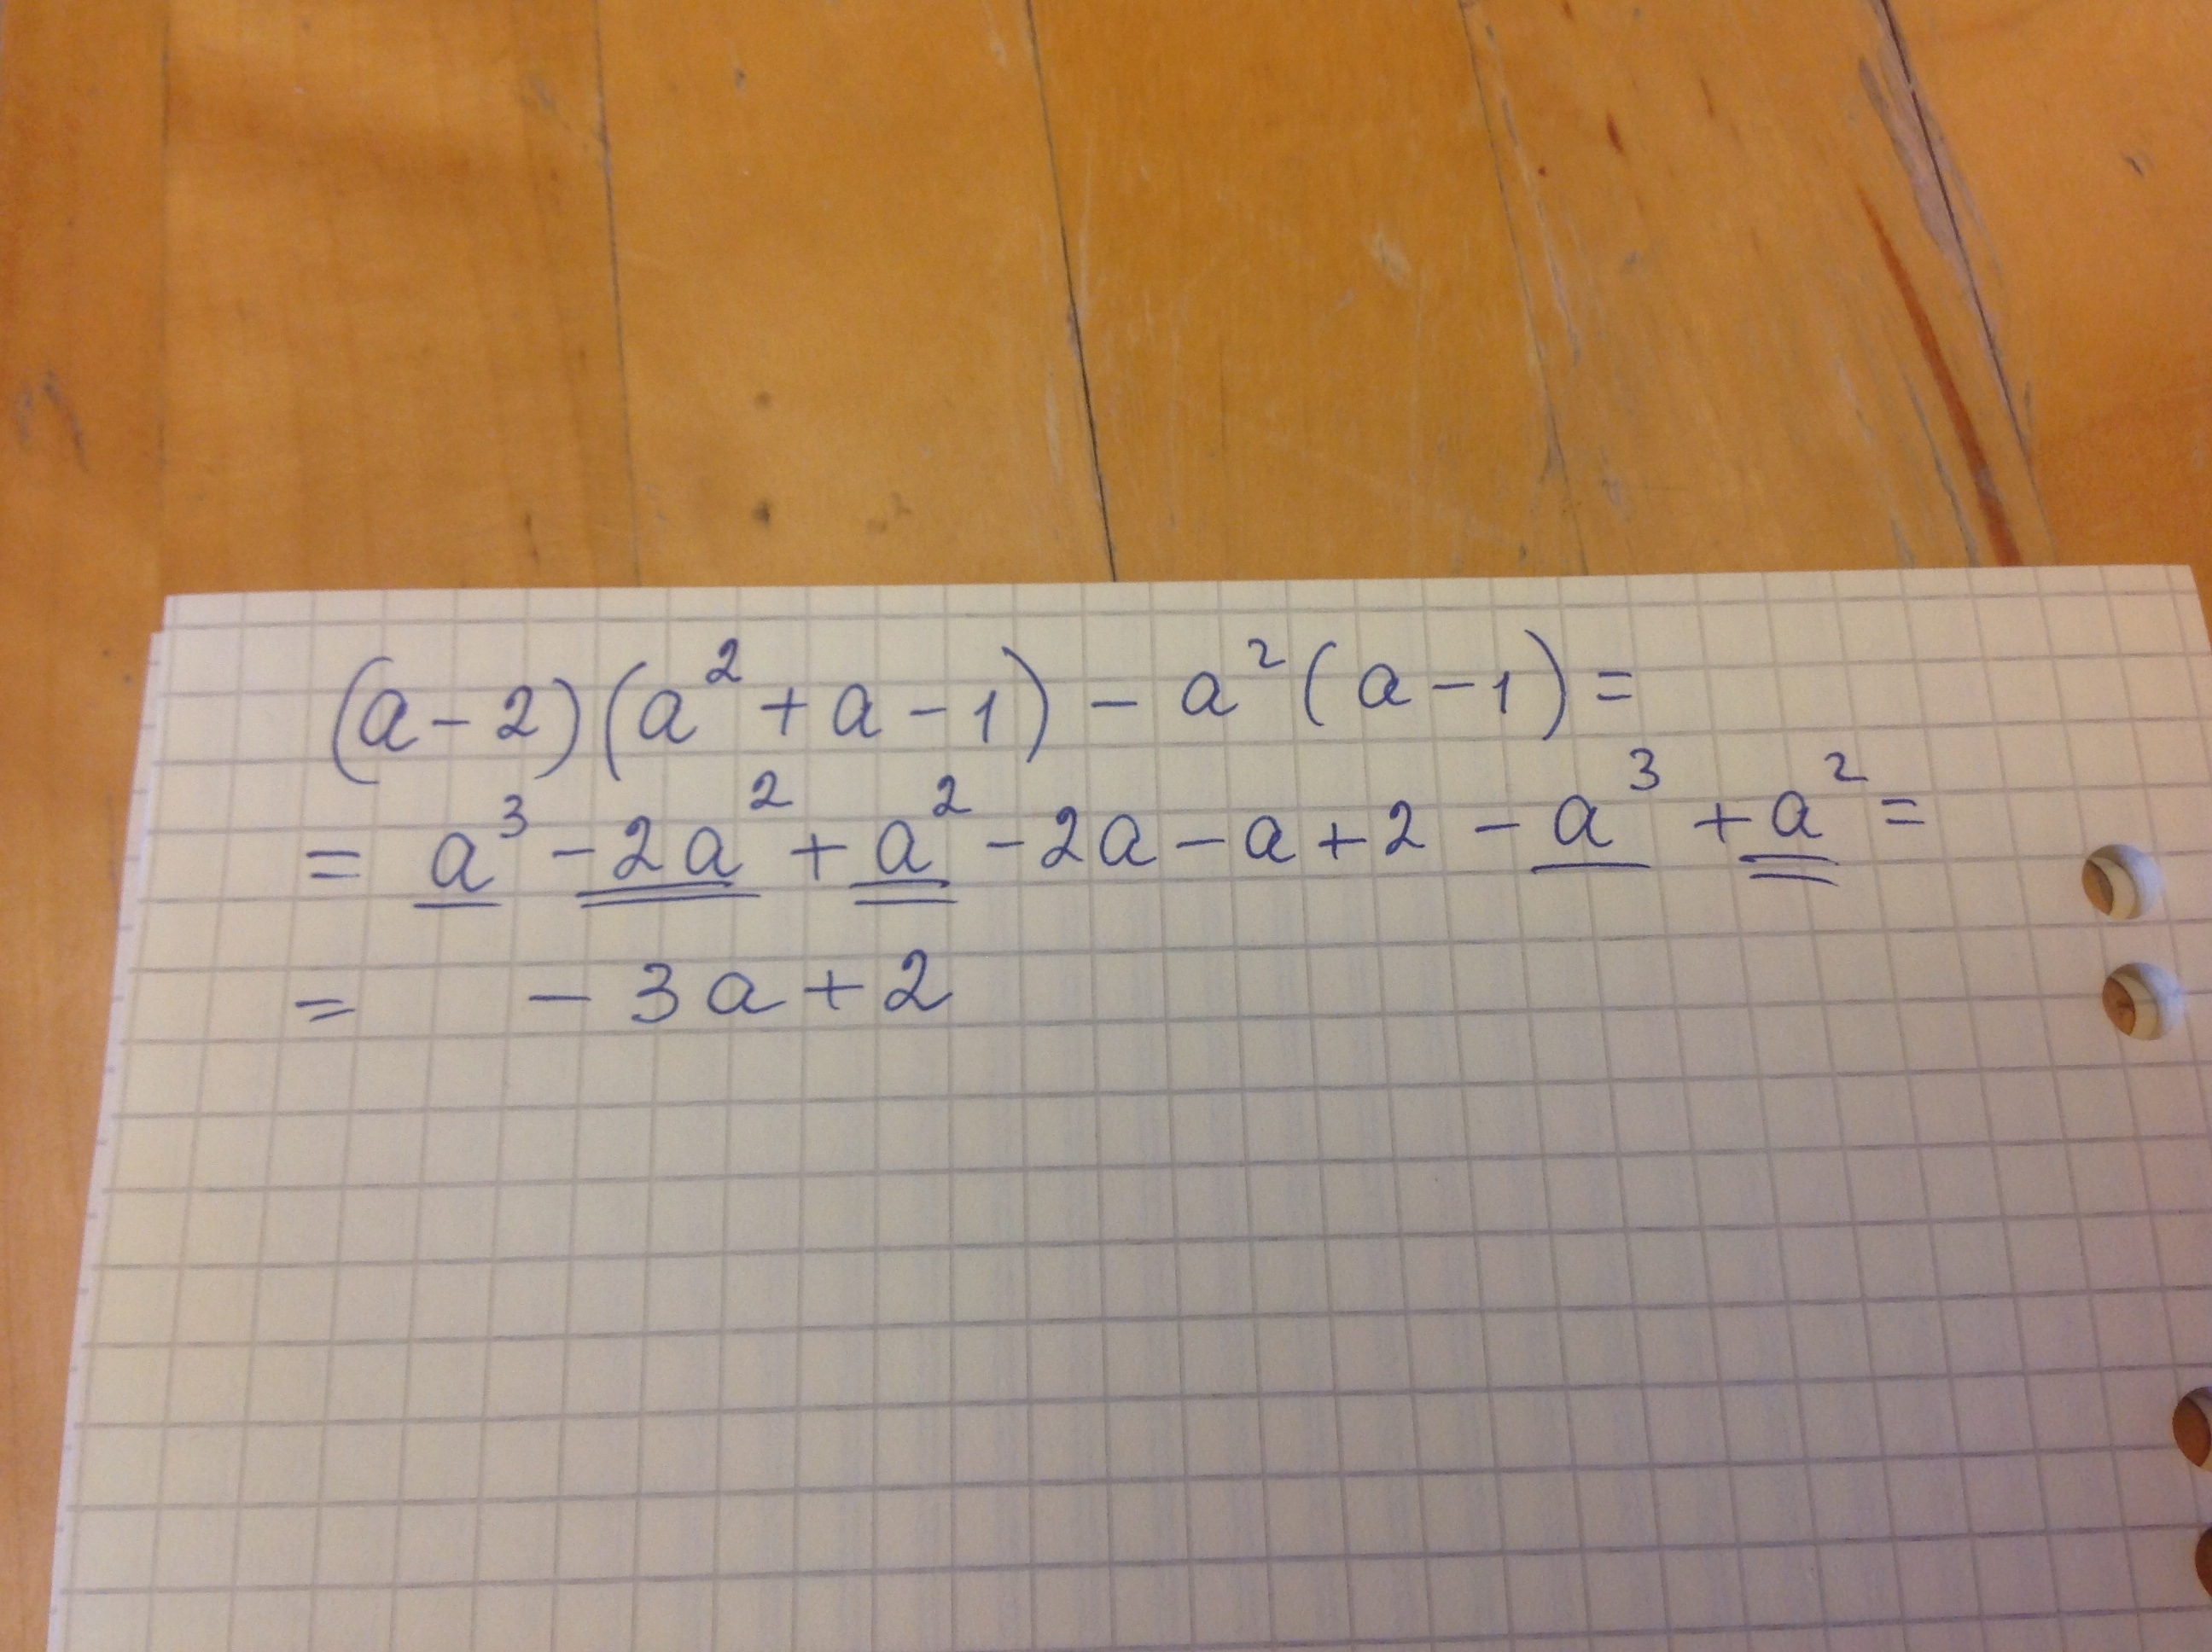 (a-2)(a²+a-1) - a²(a-1)=
= a³-2a²+a²-2a-a+2-a³+a²=
= -3a+2